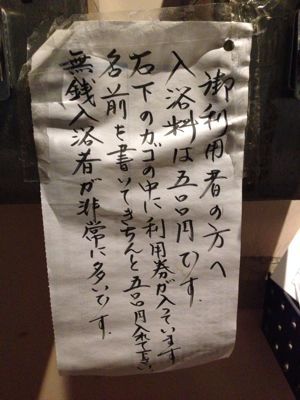 御利用者の方へ
入浴料は五〇〇円です。
右下のカゴの中に利用券が入っています
名前を書いてきちんと五〇〇円入れて下さい
無銭入浴者が非常に多いです。